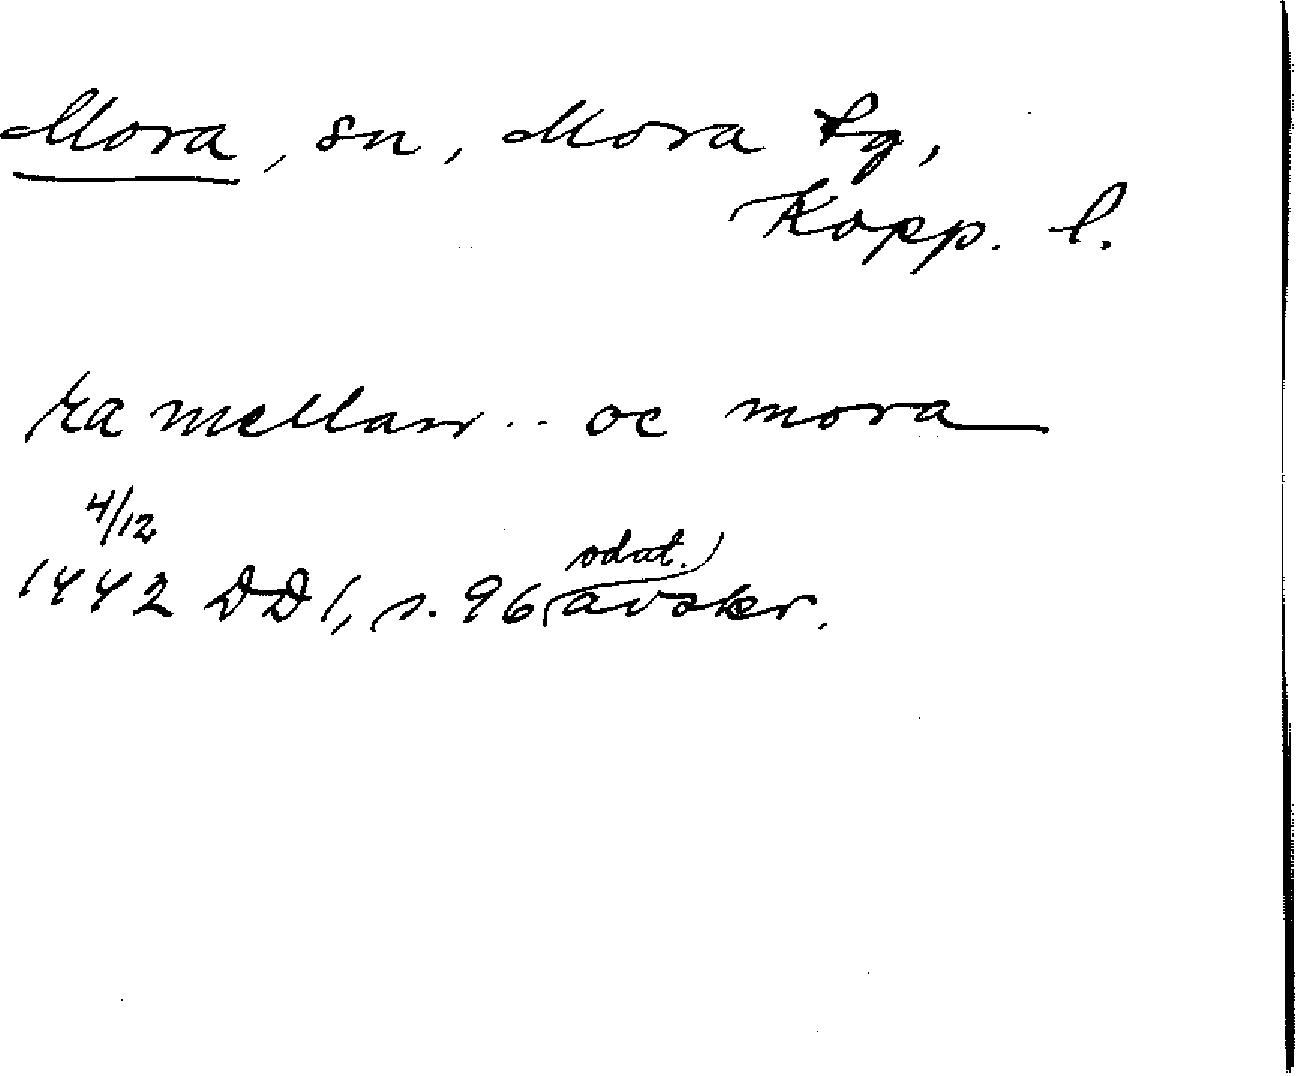 Mora, sn, Mora tg,
Kopp. l.
ra mellan .. oc mora
4/12
1442 DD 1, s. 96 (odat. avskr.)